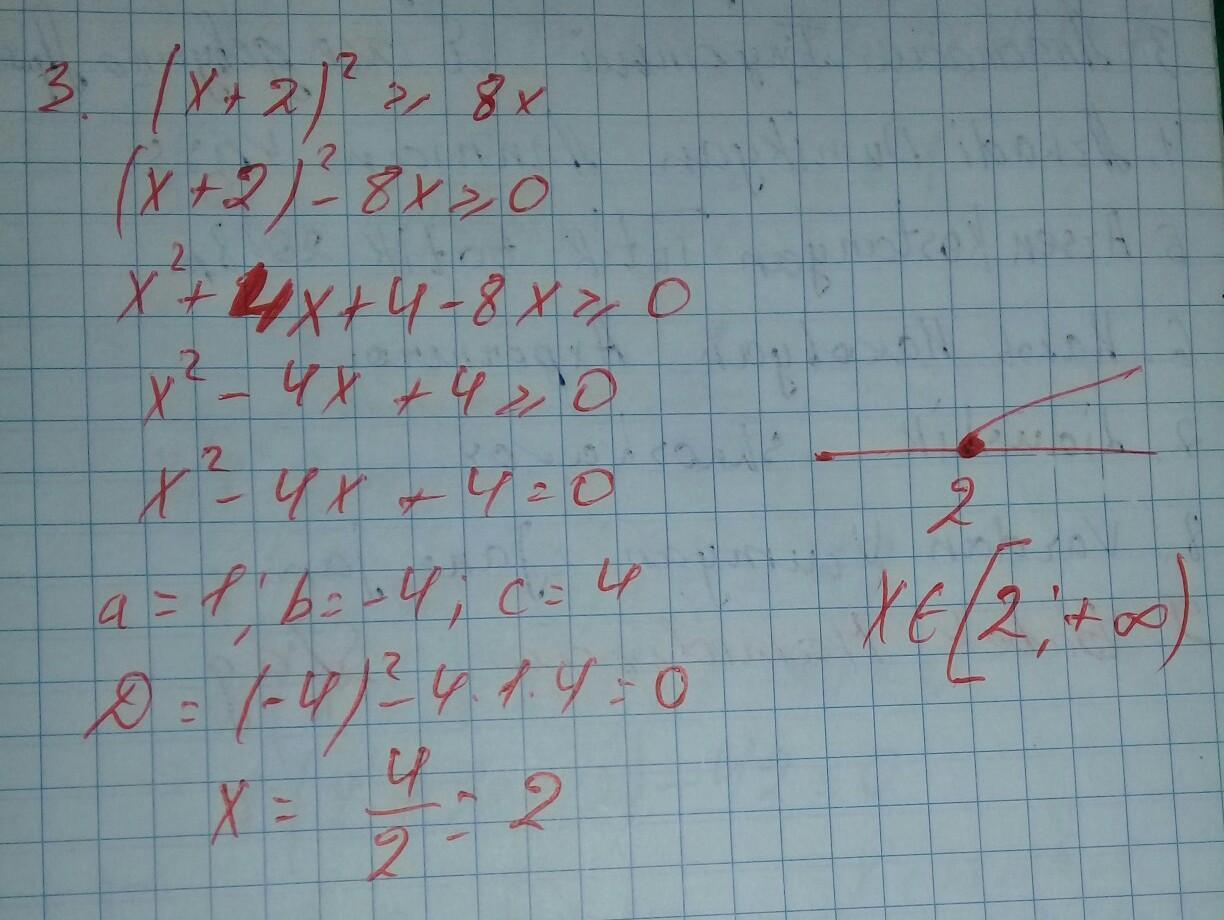 3. (x+2)² ≥ 8x
(x+2)² - 8x ≥ 0
x² + 4x + 4 - 8x ≥ 0
x² - 4x + 4 ≥ 0
x² - 4x + 4 = 0
a = 1; b = -4; c = 4
D = (-4)² - 4·1·4 = 0
x = 4/2 = 2
2
x ∈ [2; +∞)